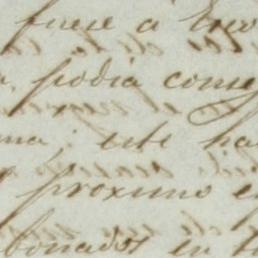 fuese a
podia conse
ma; este ha
proximo e
bonados en t